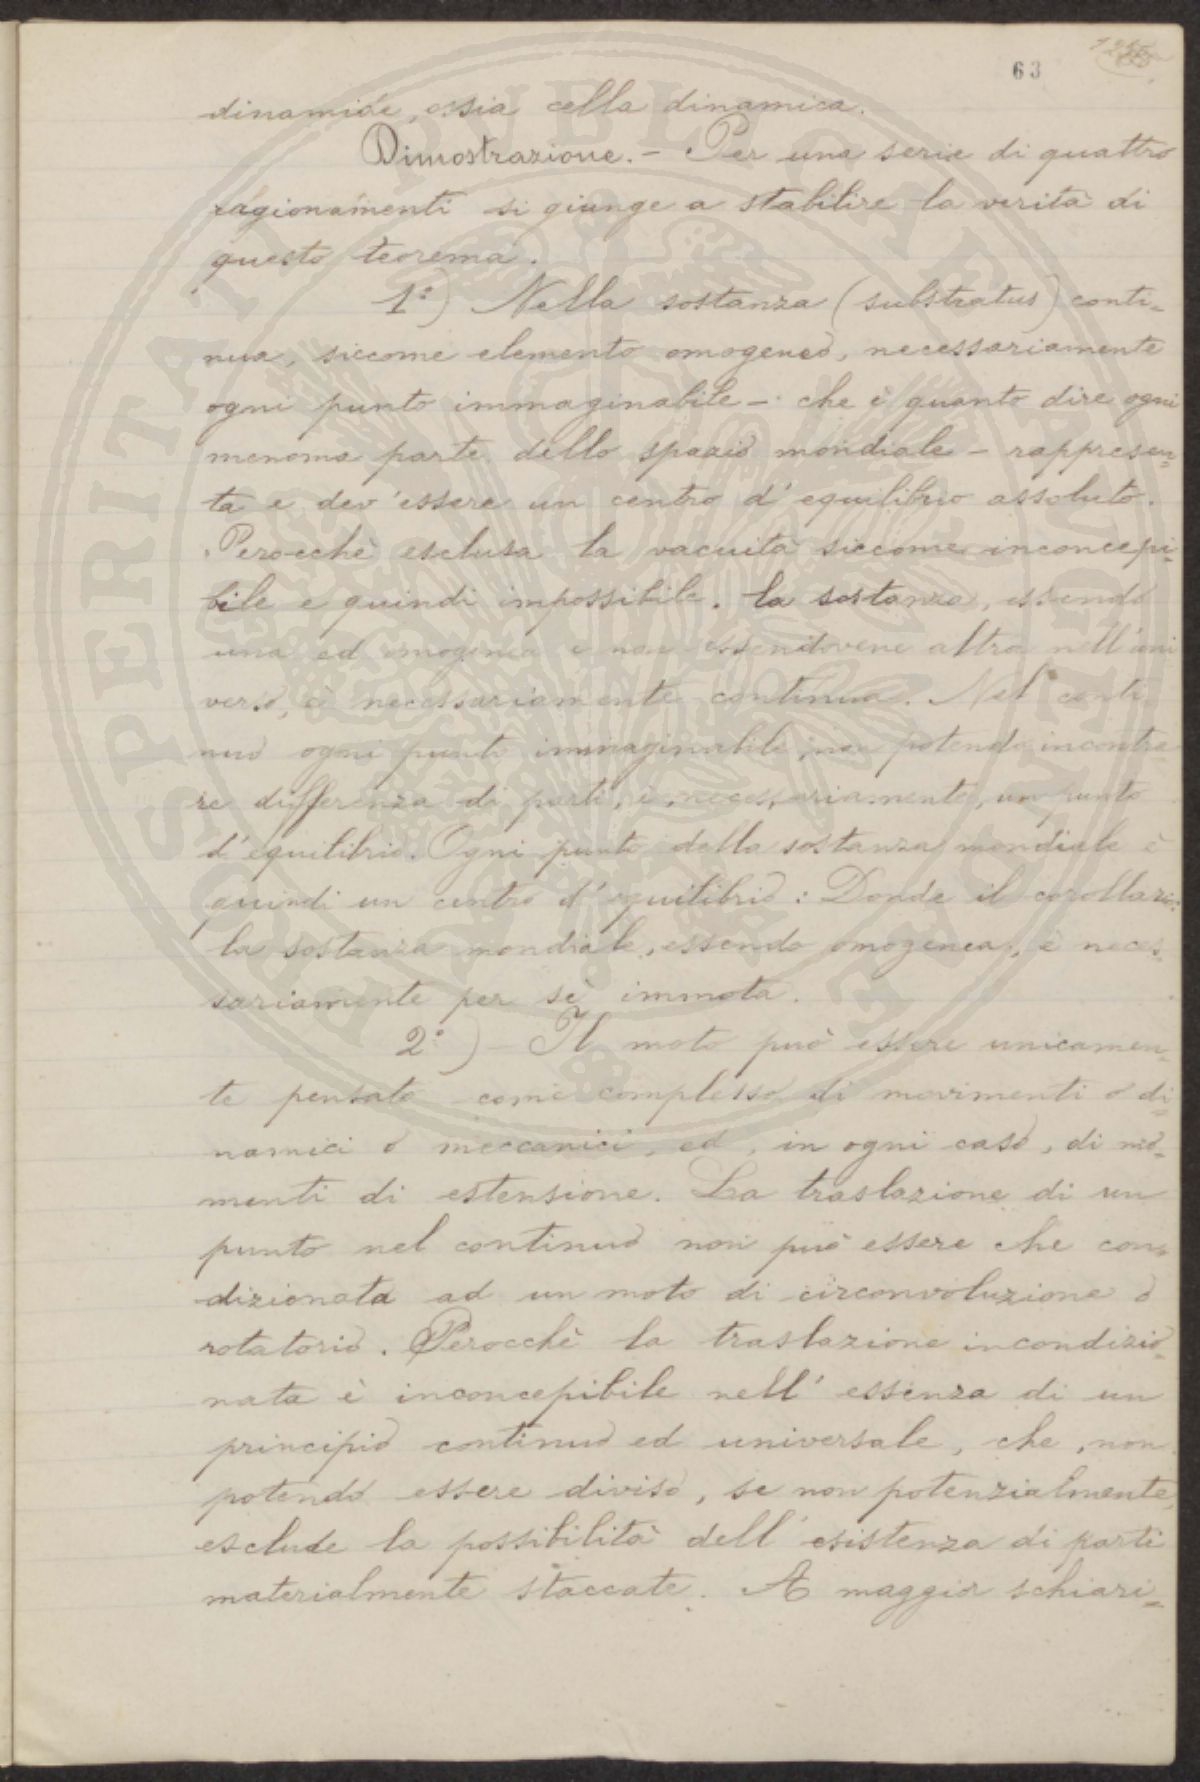 63
dinamide, ossia cella dinamica.
Dimostrazione. - Per una serie di quattro
ragionamenti si giunge a stabilire la verità di
questo teorema.
1°) Nella sostanza (substratus) conti=
nua, siccome elemento omogeneo, necessariamente
ogni punto immaginabile - che è quanto dire ogni
menoma parte dello spazio mondiale - rappresen=
ta e dev'essere un centro d'equilibrio assoluto.
Perocchè esclusa la vacuità siccome inconcepi=
bile e quindi impossibile, la sostanza, essendo
una ed omogenea e non essendovene altra nell'uni
verso, è necessariamente continua. Nel conti
nuo ogni punto immaginabile, non potendo incontra
re differenza di parti, è, necessariamente, un punto
d'equilibrio. Ogni punto della sostanza mondiale è
quindi un centro d'equilibrio: Donde il corollario:
la sostanza mondiale, essendo omogenea, è neces=
sariamente per sè immota.
2°) - Il moto può essere unicamen=
te pensato come complesso di movimenti o di=
namici o meccanici, ed, in ogni caso, di mo=
menti di estensione. La traslazione di un
punto nel continuo non può essere che con=
dizionata ad un moto di circonvoluzione o
rotatorio. Perocchè la traslazione incondizio=
nata è inconcepibile nell'essenza di un
principio continuo ed universale, che, non
potendo essere diviso, se non potenzialmente,
esclude la possibilità dell'esistenza di parti
materialmente staccate. A maggior schiari=
SPERITAT PUBLICAE